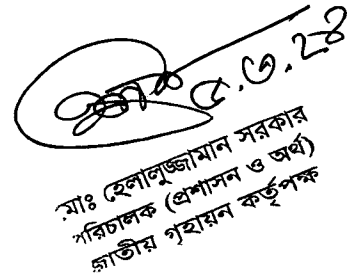 ৫.৩.২৪
মোঃ হেলালুজ্জামান সরকার
পরিচালক (প্রশাসন ও অর্থ)
জাতীয় গৃহায়ন কর্তৃপক্ষ